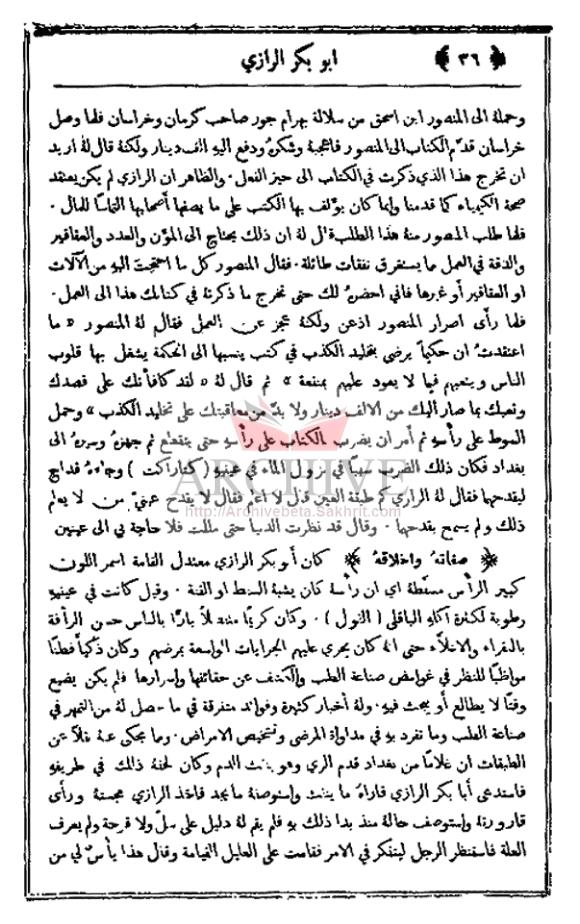 ﴿ ٣٦ ﴾ ابو بكر الرازي
وحملهُ الى المنصور ابن اسحق من سلالة بهرام جور صاحب كرمان وخراسان فلما وصل
خراسان قدّم الكتاب الى المنصور فاعجبهُ وشكرهُ ودفع اليهِ الف دينار ولكنهُ قال لهُ اريد
ان تخرج هذا الذي ذكرت في الكتاب الى حيز الفعل . والظاهر ان الرازي لم يكن يعتقد
صحة الكيمياء كما قدمنا وانما كان يؤلف بها الكتب على ما يصفها أصحابها التماسًا للمال .
فلما طلب المنصور منهُ هذا الطلب قال لهُ ان ذلك يحتاج الى المؤن والعدد والعقاقير
والدقة في العمل ما يستغرق نفقات طائلة . فقال المنصور كل ما احتجت اليهِ من الآلات
او العقاقير أو غيرها فاني احضرهُ لك حتى تخرج ما ذكرتهُ في كتابك هذا الى العمل .
فلما رأى اصرار المنصور اذعن ولكنهُ عجز عن العمل فقال لهُ المنصور « ما
اعتقدت ان حكيمًا يرضى بتخليد الكذب في كتب ينسبها الى الحكمة يشغل بها قلوب
الناس ويتعبهم فيما لا يعود عليهم بمنفعة » ثم قال لهُ « لقد كافأنك على قصدك
وتعبك بما صار اليك من الالف دينار ولا بدّ من معاقبتك على تخليد الكذب » وحمل
السوط على رأسهِ ثم أمر ان يضرب بالكتاب على رأسهِ حتى يتقطع ثم جهزهُ وسيرهُ الى
بغداد فكان ذلك الضرب سببًا في نزول الماء في عينيهِ ( كتاراكت ) وجاءهُ قداح
ليقدحها فقال لهُ الرازي كم طبقة العين قال لا اعلم فقال لا يقدح عينيّ من لا يعلم
ذلك ولم يسمح بقدحها . وقال قد نظرت الدنيا حتى مللت فلا حاجة لي الى عينين
ARCHIVE
http://Archivebeta.Sakhrit.com
﴿ صفاتهُ واخلاقهُ ﴾ كان أبو بكر الرازي معتدل القامة اسمر اللون
كبير الرأس مسفّطهُ اي ان رأسهُ كان يشبه السفط او القفة . وقيل كانت في عينيهِ
رطوبة لكثرة اكلهِ الباقلى ( الفول ) . وكان كريمًا متفضلاً بارًا بالناس حسن الرأفة
بالفقراء والاعلاّء حتى انهُ كان يجري عليهم الجرايات الواسعة بمرضهم وكان ذكيًا فطنًا
مواظبًا للنظر في غوامض صناعة الطب والكشف عن حقائقها واسرارها فلم يكن يضيع
وقتًا لا يطالع أو يبحث فيهِ . ولهُ أخبار كثيرة وفوائد متفرقة في ما حصل لهُ من التمهر في
صناعة الطب وما تفرد بهِ في مداواة المرضى وتشخيص الامراض . ومما يحكى عنهُ نقلاً عن
الطبقات ان غلامًا من بغداد قدم الري وهو ينفث الدم وكان لحقهُ ذلك في طريقهِ
فاستدعى أبا بكر الرازي فأراهُ ما ينفث واستوصفهُ ما يجد فاخذ الرازي مجستهُ ورأى
قارورتهُ واستوصف حالهُ منذ بدا ذلك بهِ فلم يقم لهُ دليل على سلّ ولا قرحة ولم يعرف
العلة فاستنظر الرجل ليتفكر في الامر فقامت على العليل القيامة وقال هذا يأسٌ لي من